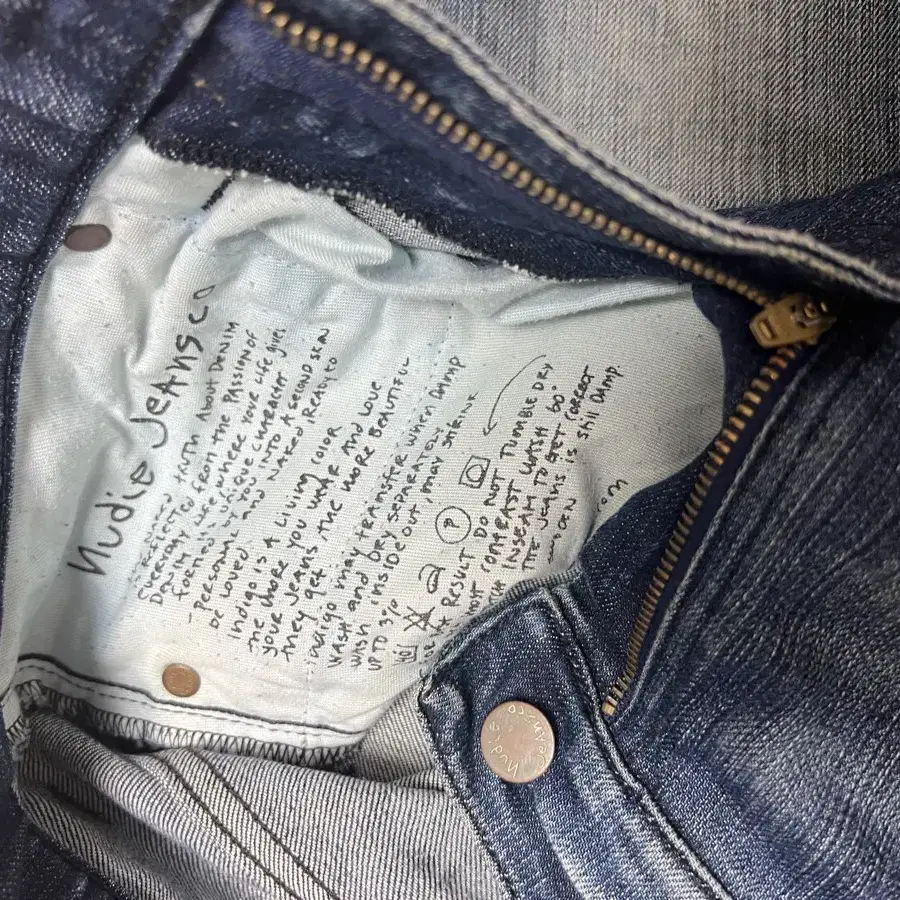 Nudie Jeans.co
Naked truth About DENIM
Reflected From the PAssion of
Denim. where Your LiFe gives
Formed unique CHARACTER
- Personal by You into A second skin
Be Loved and NAked! Ready to
Indigo is A Living Color
the more you wear and Love
Your Jeans
they get the more BEAUTIFUL
Indigo mAy transfer when DAmp
WAsh and Dry sepArAtely
WAsh insiDe out, mAy shrink
UP TO 3%
P
Result Do not tumble Dry
most contrast wash 60°
the inseam to get correct
the jeans is still DAmp.
.com
Nudie Jeans.co